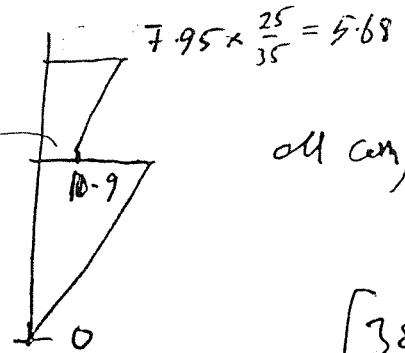 7.95 × 25/35 = 5.68
all
0-9
0
[38